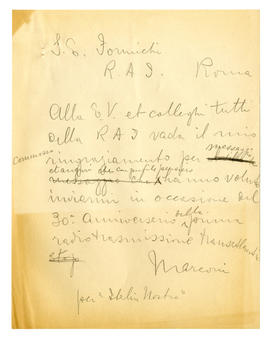 S. E. Formichi
R. A. I. Roma
Alla E. V. et colleghi tutti
della R A I vada il mio
Commosso
ringraziamento per
messaggio che hanno voluto
inviarmi in occasione del
30° anniversario della prima
radiotrasmissione transatlantica
stop
Marconi
per "Italia Nostra"